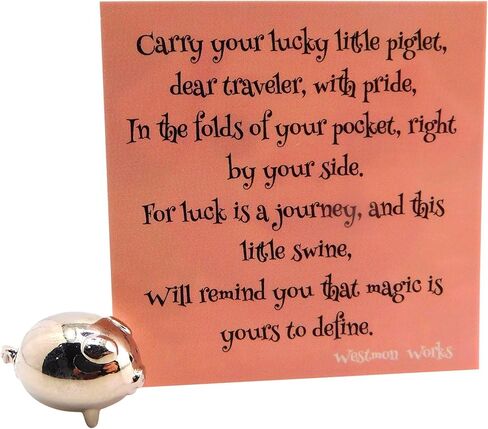 Carry your lucky little piglet,
dear traveler, with pride,
In the folds of your pocket, right
by your side.
For luck is a journey, and this
little swine,
Will remind you that magic is
yours to define.
Westmon Works